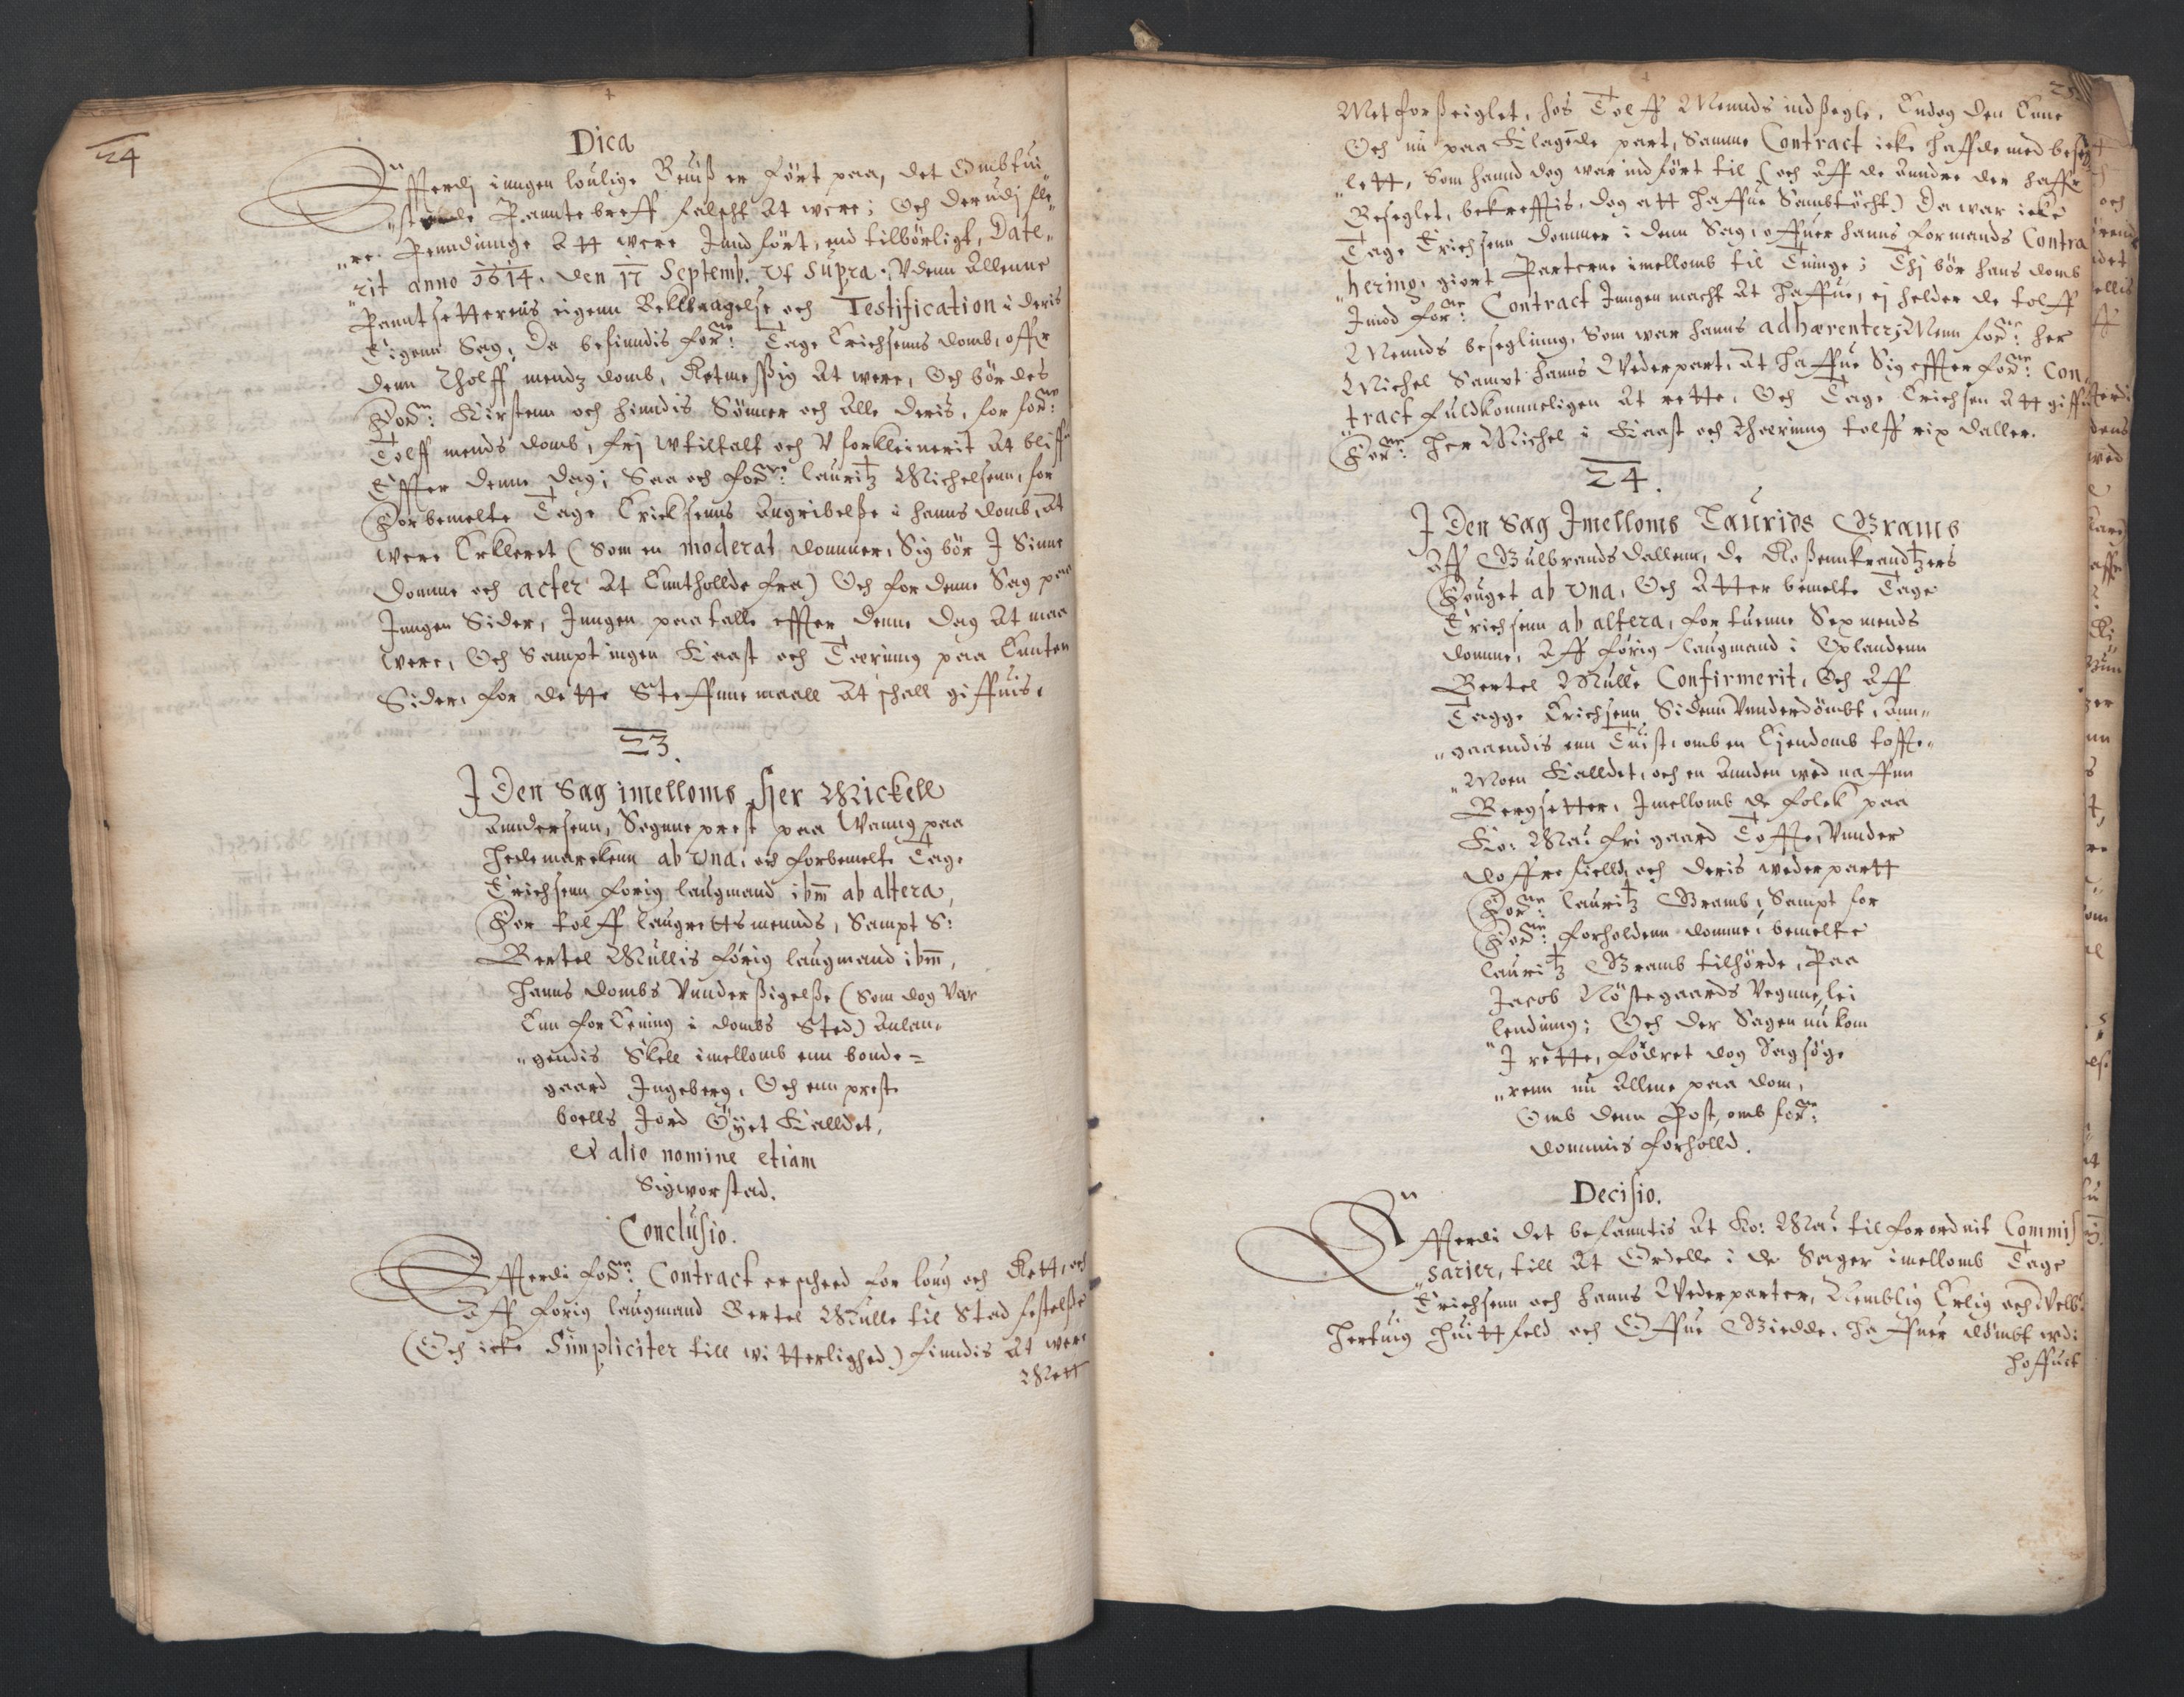 24
Dica
Efferdj inngen loulige Beuiß er ført paa, det Ombtui„
„stede Panntebreff falscht At were; Och derudj fle„
„re Penndninge Att were Jnndført, end tilbörligt, Date„
„rit anno 1614. den 17 Septemb. Vt Supra. Vdenn Allenne
Panntsetterens eigenn Bekllaagelse och Testification i deris
Eigenn Sag; Da befinndis for:ne Tage Erichsenns domb, offr
denn Tholff mendz domb, Retmeßig At were, Och bör des
For:ne Kirstenn och hinndis Sönner och Alle deris, for for:ne
Tolff mends domb, frj vtiltalt och Vforkleinerit At bliffe
Effter denne dag; Saa och for:ne lauritz Michelsenn, for
Forbemelte Tage Ericksenns Angribelße i hanns domb, At
were Erkleret (Som en moderat dommer, Sig bör J Sinne
domme och acter At Enntholde fra) Och for denne Sag paa
Jnngen Sider, Jnngen paatalle effter denne dag At maa
were, Och Sampt ingen Kaast och Tæring paa Enten
Sider, for dette Steffnnemaall At schall giffuis.
23.
J Den Sag imelloms her Mickell
Anndersenn, Sognneprest paa Wanng paa
Hedemarckenn ab una, och forbemelte Tage
Erichsenn forig laugmand ibm ab altera,
For tolff laugrettsmennds, Sampt S:
Bertel Mullis förig laugmand ibm,
hanns dombs Vnnderßigelße (Som dog Var
Enn forEening i dombs Sted) Anlan„
„gendis Skell imellomb enn bonde=
gaard Jngeberg, Och enn prest
boells Jord Öyet Kalldet,
Et alio nomine etiam
Sigworstad.
Conclusio.
Efferdi for:ne Contract er scheed for loug och Rett, och
Aff forig laugmand Bertel Mulle til Stadfestelße
(Och icke Simpliciter till witterlighed) finndis At were
Mett
Met forßeiglet, hos Tolff Mennds indßegle, Endog den Enne
Och nu paa Klagende part, Samme Contract icke haffde med beseg
„lett, Som hannd dog war indført til (och Aff de Anndre der haffr
Beseglet, bekrefftis, dog att haffue Sambtöcht) Da war icke
Tage Erichsenn dommer i denn Sag, offuer hanns formands Contra
„hering, giort Parterne imellomb til Tninge; Thj bör hans domb
Jmod for:ne Contract Jnngen macht At haffue, ej helder de tolff
Mennds besegling, Som war hanns adhærenter; Menn for:ne her
Michel Sampt hanns Wederpart, At haffue Sig effter for:ne Con„
„tract fuldkommeligen At rette, Och Tage Erichsen Att giffue
For:ne her Michel i Kaast och Thæring tolff rix daller.
24.
J Den Sag Jmelloms Laurids Grams
Aff Gulbrandsdallenn, de Roßennkrandtzers
Fouget ab una, Och Atter bemelte Tage
Erichsenn ab altera, for tuenne Sexmends
domme, Aff förig laugmand i Oplandenn
Bertel Mulle Confirmerit, Och Aff
Tagge Erichsenn Sidenn Vnnderdömbt, Ann„
„gaaendis enn Tuist, omb en Ejendomb toffte„
„Moen Kalldet, och en Annden wed naffnn
Bergsetter, Jmellomb de folck paa
Ko: Mai: frigaard Toffte, Vnnder
doffrefielld, och deris wederpartt
For:ne lauritz Gramb, Sampt for
For:ne forholdenn domme, bemelte
lauritz Gramb tilhörde, Paa
Jacob Nöstegaards Vegnne, lei
lendning; Och der Sagen nu kom
J rette, födret dog Sagsöge
„renn nu Allene paa dom,
Omb denn Post, omb for:ne
dommis forholld.
Decisio.
Efferdi det befanntis At Ko: Mai: tilforordnit Commis
„sarier, till At Ordelle i de Sager imellomb Tage
Erichsenn och hanns Wederparter, Nemblig Erlig och Welb:
Hertuig Huittfeld och Offue Giedde, haffuer dömbt udi
hoffuet